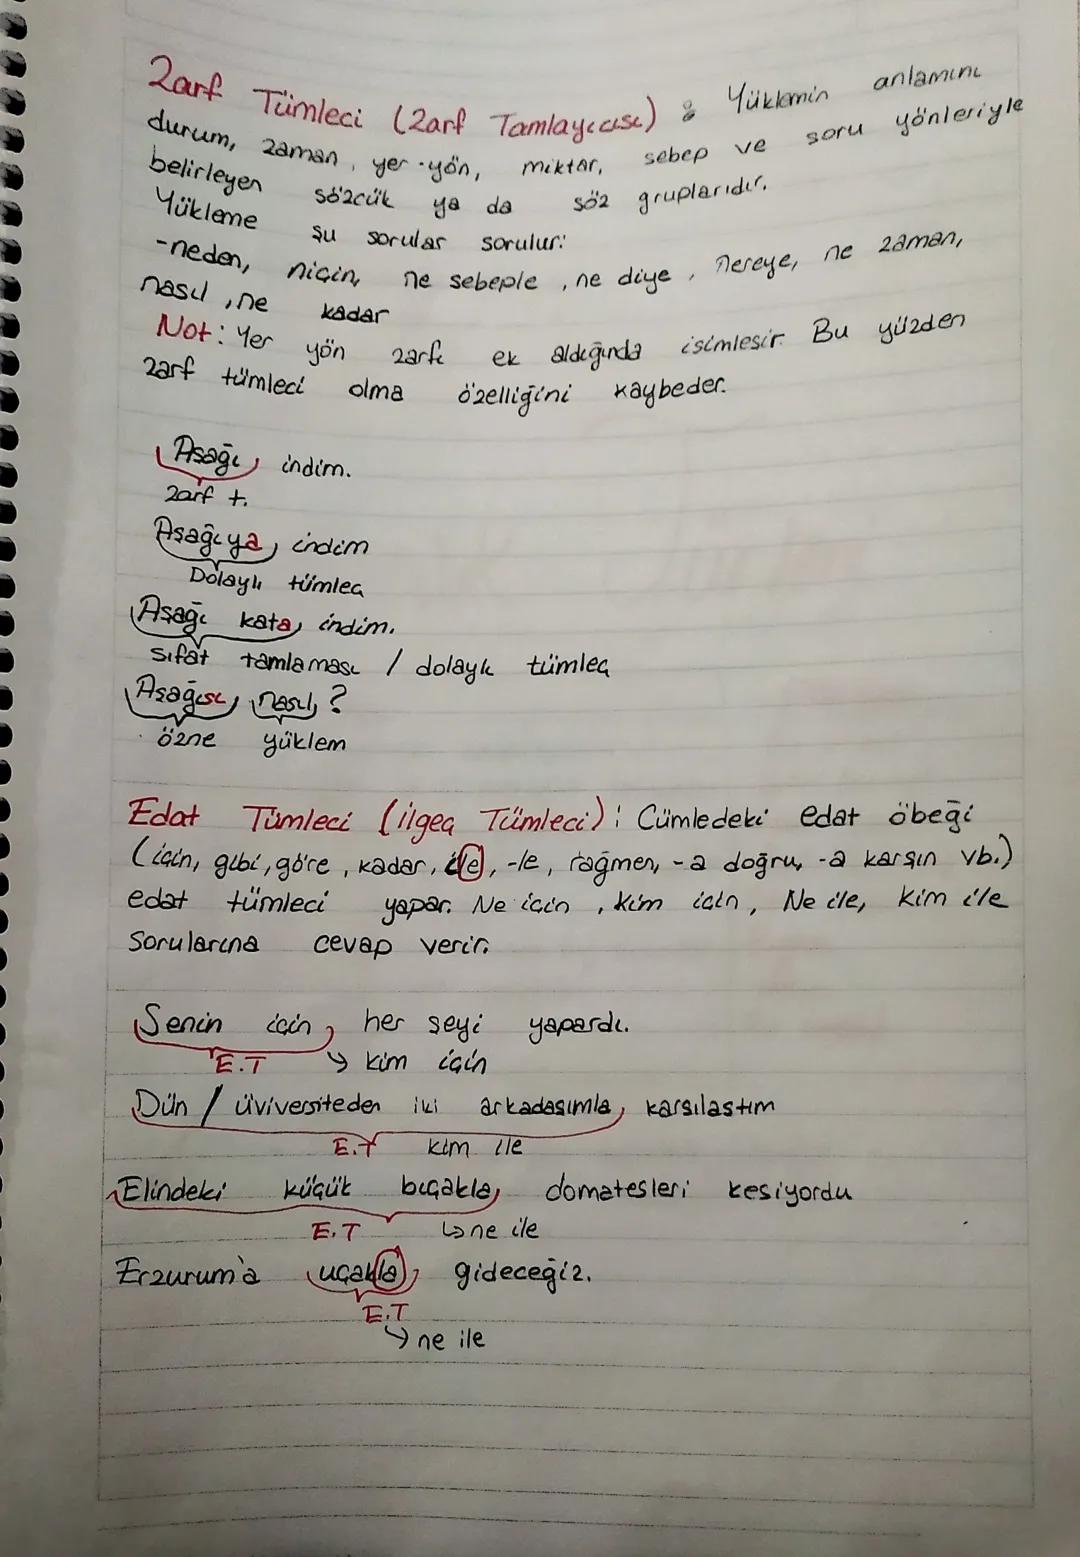 Zarf Tümleci (Zarf Tamlayıcısı) : Yüklemin anlamını
durum, zaman, yer-yön, miktar, sebep ve soru yönleriyle
belirleyen sözcük ya da söz gruplarıdır.
Yükleme şu sorular sorulur:
-neden, niçin, ne sebeple, ne diye, nereye, ne zaman,
nasıl, ne kadar
Not: Yer yön zarfı ek aldığında isimleşir. Bu yüzden
zarf tümleci olma özelliğini kaybeder.
Aşağı indim.
zarf t.
Aşağıya indim
Dolaylı tümleç
Aşağı kata indim.
sıfat tamlaması / dolaylı tümleç
Aşağısı nasıl?
özne yüklem
Edat Tümleci (ilgeç Tümleci): Cümledeki edat öbeği
(için, gibi, göre, kadar, ile, -le, rağmen, -a doğru, -a karşın vb.)
edat tümleci yapar. Ne için, kim için, Ne ile, kim ile
sorularına cevap verir.
Senin için her şeyi yapardı.
E.T → kim için
Dün / üviversiteden iki arkadaşımla karşılaştım
E.T kim ile
Elindeki küçük bıçakla domatesleri kesiyordu
E.T ↳ ne ile
Erzurum'a uçakla gideceğiz.
E.T
↳ ne ile